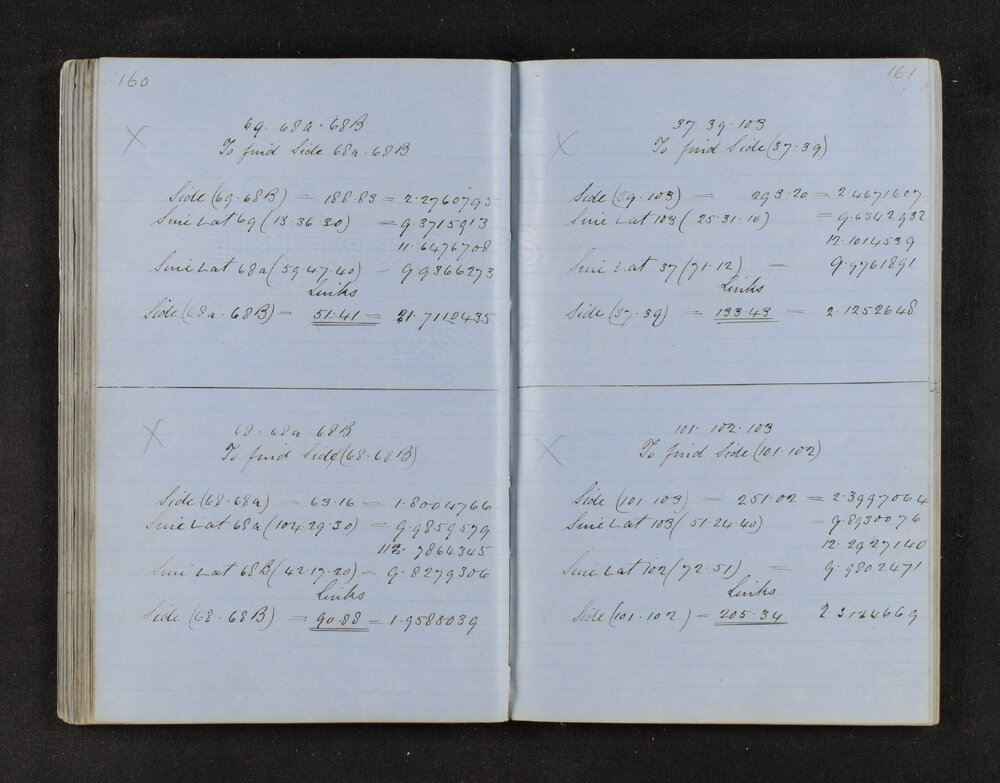 160
69. 68a. 68B
To find Side 68a. 68B
Side (69. 68B) = 188.83 = 2.2760795
Sine Lat 69 (13.36.30) = 9.3715913
11.6476708
Sine Lat 68a (59.47.40) = 9.9366273
Links
Side (68a. 68B) = 51.41 = 1.7110435
68. 68a. 68B
To find Side (68. 68B)
Side (68. 68a) = 63.16 = 1.8004766
Sine Lat 68a (104.29.30) = 9.9859579
11.7864345
Sine Lat 68B (42.17.20) = 9.8279306
Links
Side (68. 68B) = 90.88 = 1.9585039
161
37. 39. 103
To find Side (37. 39)
Side (39. 103) = 293.20 = 2.4671607
Sine Lat 103 (25.31.10) = 9.6342932
12.1014539
Sine Lat 37 (71.12) = 9.9761891
Links
Side (37. 39) = 133.43 = 2.1252648
101. 102. 103
To find Side (101. 102)
Side (101. 103) = 251.02 = 2.3997064
Sine Lat 103 (51.24.40) = 9.8930076
12.2927140
Sine Lat 102 (72.51) = 9.9802471
Links
Side (101. 102) = 205.34 2.3124669